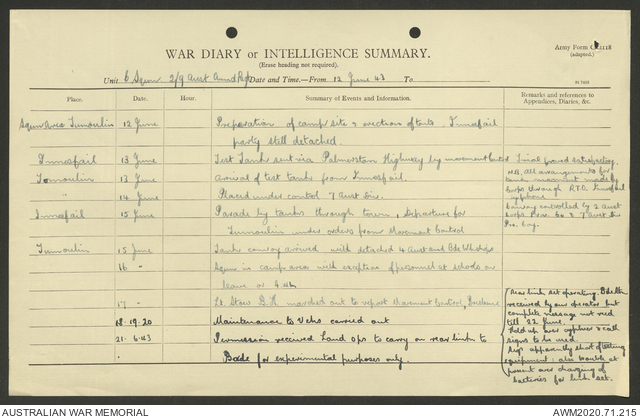 Army Form C.2118
(adapted.)
WAR DIARY or INTELLIGENCE SUMMARY.
(Erase heading not required).
Unit 6 Sqn 2/9 Aust Armd Regt Date and Time.—From 12 June 43 To
Place. Date. Hour. Summary of Events and Information. Remarks and references to Appendices, Diaries, &c.
Sqn Area Tumoulin 12 June Preparation of camp site & erection of tents. Innisfail
party still detached.
Innisfail 13 June Test Tank sent via Palmerston Highway by movement control Trial proved satisfactory.
Tumoulin 13 June Arrival of test tanks from Innisfail. N.B. All arrangements for
tank movement made by
" 14 June Placed under control 7 Aust Div. Corps through R.T.O. Innisfail
Innisfail 15 June Parade by tanks through town, Departure for
Convoy controlled by 2 Aust
Tumoulin under orders from Movement Control Corps Prov. Co & 7 Aust Div
Pro. Coy.
Tumoulin 15 June Tanks convoy arrived with detached 4 Aust Armd Bde Wkshops
16 " Sqn in camp area with exception of personnel at schools on
leave or
17 " Lt. Stow D.H. marched out to report Movement Control, Brisbane
18.19.20 Maintenance to Vehs carried out
21.6.43 Permission received Land Ops to carry on rear link to
" Bde for experimental purposes only.
Rear link set operating. Bde
received by our operator but
complete message not recd
till 22 June.
Hold up over cyphers & call
signs to be used.
Sigs apparently short of testing
equipment: also trouble at
present over charging of
batteries for link set.
AUSTRALIAN WAR MEMORIAL
AWM2020.71.215